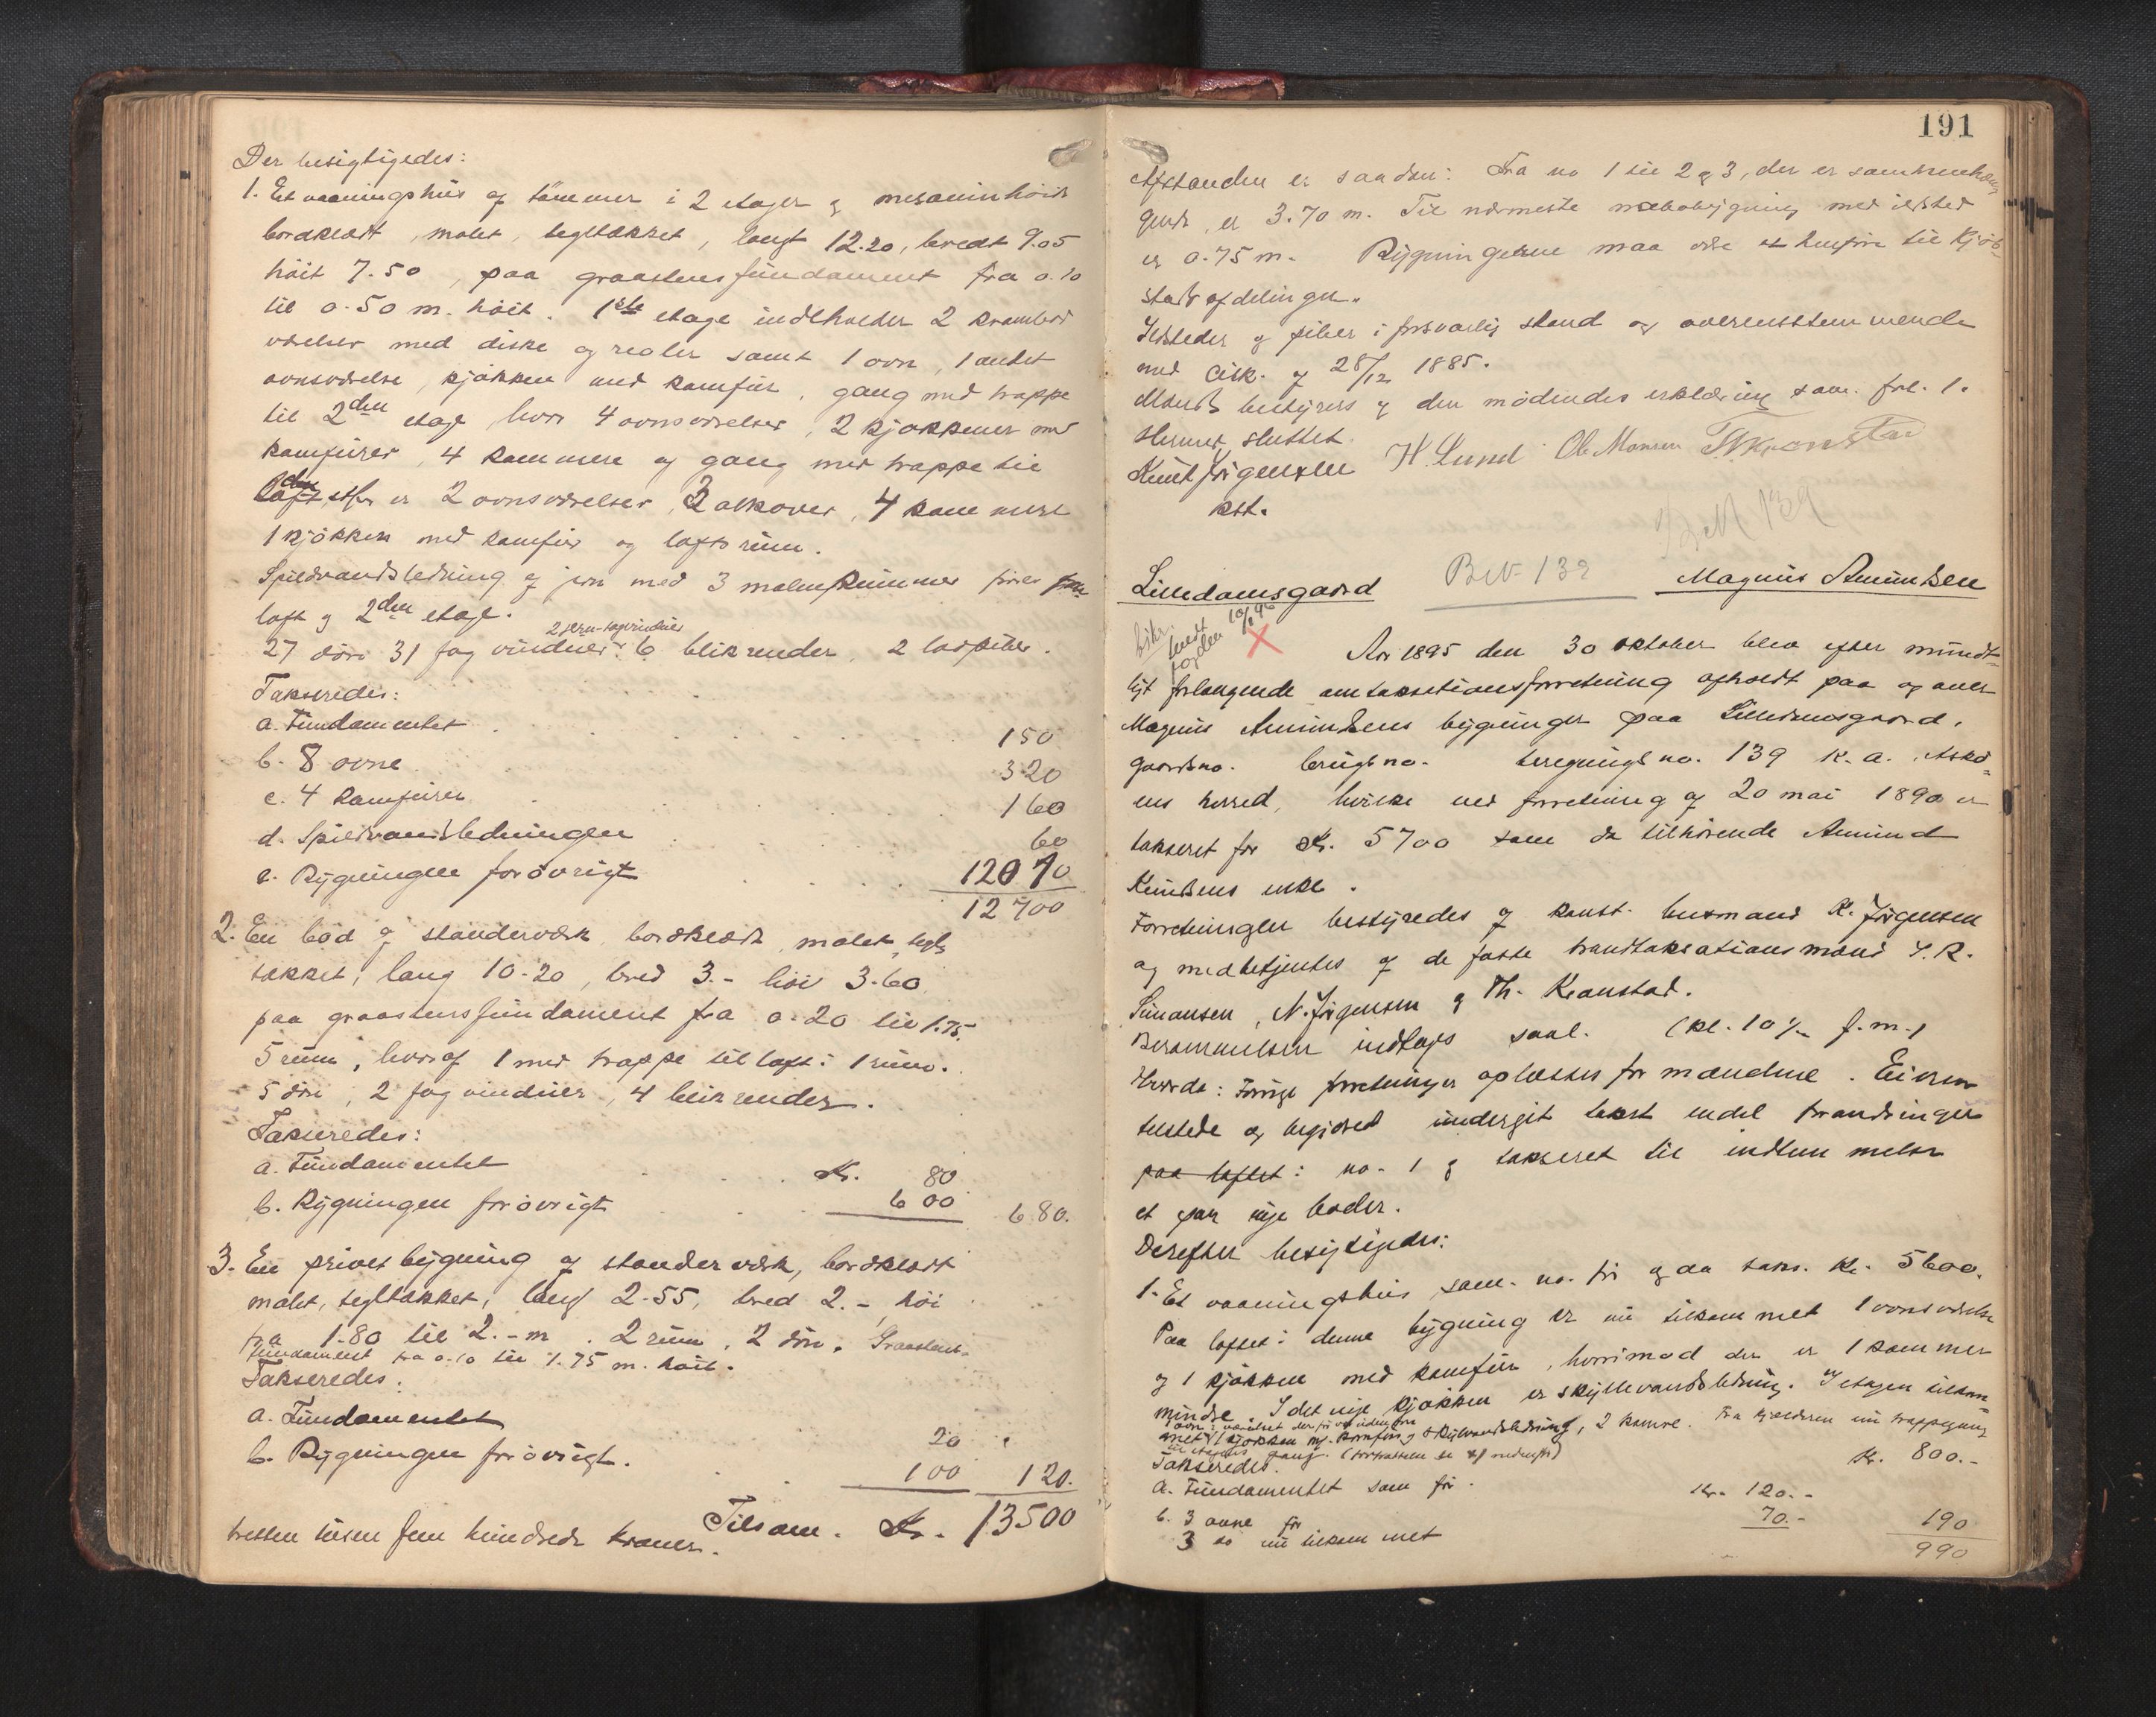 Der besigtigedes:
1. Et vaaningshus af tømmer i 2 etager og mesaninhøide
bordklædt, malet, tegltækket, langt 12.20, bredt 9.05
høit 7.50, paa graastensfundament fra 0.10
til 0.50 m. høit. 1ste etage indeholder 2 krambod
værelser med diske og reoler samt 1 ovn, 1 andet
ovnsværelse, kjøkken med komfur, gang med trappe
til 2den etage hvor 4 ovnsværelser, 2 kjøkkener med
komfurer, 4 kammere og gang med trappe til
loft er 2 ovnsværelser, 2 alkover, 4 kammere
1 kjøkken med komfur og loftsrum.
Spildvandsledning af jern med 3 malmkummer fører fra
loft og 2den etage.
2 jern-tagvinduer
27 døre 31 fag vinduer 6 blikrender, 2 ladpiber.
Takseredes:
a. Fundamentet 150
b. 8 ovne 320
c. 4 komfurer 160
d. Spildvandsledningen 60
e. Bygningen forøvrigt 12010
12700
2. En bod af standerværk bordklædt, malet, tegl-
tækket, lang 10.20, bred 3.- høi 3.60
paa graastensfundament fra 0.20 til 1.75.
5 rum, hvoraf 1 med trappe til loft i 1 rum.
5 døre, 2 fag vinduer, 4 blikrender.
Takseredes:
a. Fundamentet Kr. 80
b. Bygningen forøvrigt 600 680.
3. En privetbygning af standerværk, bordklædt
malet, tegltækket, lang 2.55, bred 2.- høi
fra 1.80 til 2.- m. 2 rum, 2 døre. Graastens-
fundament fra 0.10 til 1.75 m. høit.
Takseredes:
a. Fundamentet 20
b. Bygningen forøvrigt. 100 120.
Tilsam. Kr. 13500
tretten tusen fem hundrede kroner.
191
Afstanden er saadan: Fra no 1 til 2 og 3, der er sammenhæn
gende, er 3.70 m. Til nærmeste nabobygning med ildsted
er 0.75 m. Bygningerne maa være at henføre til Kjøb-
stadsafdelingen.
Ildsteder og piber i forsvarlig stand og overensstemmende
med Cirk. af 28/12 1885.
Mænds bestyrers og den mødendes erklæring som fol. 1.
Hermed sluttet.
Knut Jørgensen H. Lund Ol. Monsen Th Kronstad
kst.
Br.N 139
Lilledamsgaard Br.N. 139 Magnus Amundsen
Aar 1895 den 30 oktober blev efter mundt-
ligt forlangende omtaxationsforretning afholdt paa og over
Magnus Amundsens bygninger paa Lilledamsgaard.
gaardsno. brugsno. beregningsno. 139 K. a. Askø-
ens herred, hvilke ved forretning af 20 mai 1890 er
takseret for Kr. 5700 som da tilhørende Amund
Knudsens enke.
Forretningen bestyredes af konst. lensmand K. Jørgensen
og medbetjentes af de faste brandtaksationsmænd S. R.
Simonsen, N. Jørgensen og Th. Kronstad.
Berammelsen indtages saal. (kl. 10 ½ f.m.)
Hvorda: Forrige forretninger oplæstes for mændene. Eieren
tilstede og begjæred undergit takst endel forandringer
paa loftet i no. 1 og takseret til indlemmelse
et par nye boder.
Derefter besigtigedes:
1. Et vaaningshus som no. før og da taks. Kr. 5600.
Paa loftet i denne bygning er nu tilkommet 1 ovnsværelse
og 1 kjøkken med komfur, hvorimod der er 1 kammer
mindre. I det nye kjøkken er skyllevandsledning. I etagen tilkom-
met 1 kjøkken m. komfur og skyllevandsledning, 2 kamre. Fra kjælderen nu trappegang
til etagens gang.
Takseredes. Kr. 800.-
a. Fundamentet som før. Kr. 120.-
b. 3 ovne før 70.- 190
3 do nu tilkommet 990